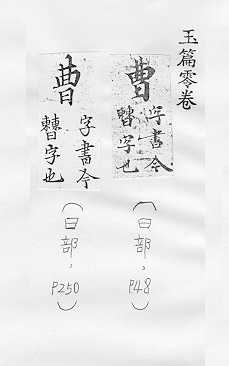 玉篇零卷
曹
字書今
字也
(曰部，P48)
曹
字書今
字也
(曰部，P250)